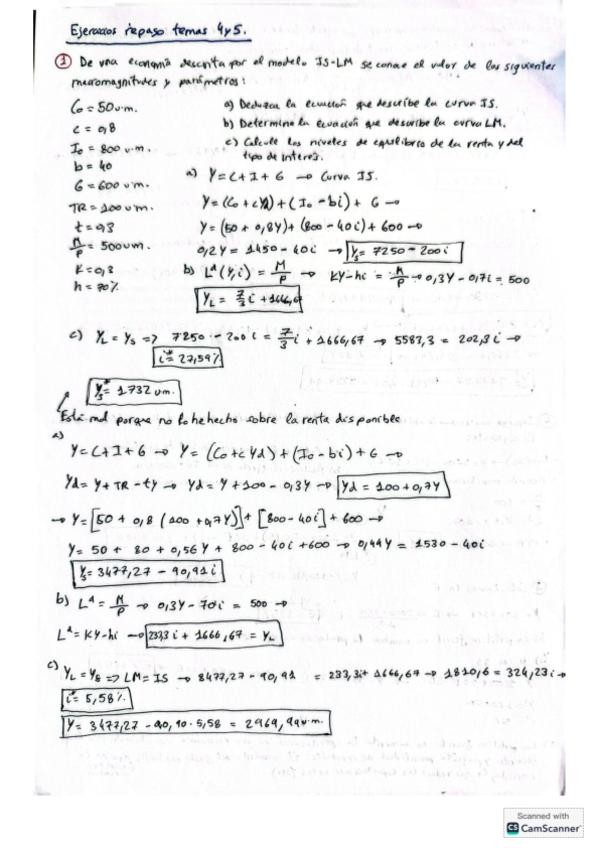 Ejercicios repaso temas 4 y 5.
① De una economía descrita por el modelo IS-LM se conoce el valor de los siguientes
macromagnitudes y parámetros:
C₀ = 50 u.m.
c = 0,8
I₀ = 800 u.m.
b = 40
G = 600 u.m.
TR = 100 u.m.
t = 0,3
M/P = 500 u.m.
K = 0,3
h = 70%
a) Deduzca la ecuación que describe la curva IS.
b) Determine la ecuación que describe la curva LM.
c) Calcule los niveles de equilibrio de la renta y del
tipo de interés.
a) Y = C + I + G → Curva IS.
Y = (C₀ + cYd) + (I₀ - bi) + G →
Y = (50 + 0,8Y) + (800 - 40i) + 600 →
0,2Y = 1450 - 40i → Ys = 7250 - 200i
b) Lᵈ(Y,i) = M/P → KY - hi = M/P → 0,3Y - 0,7i = 500
YL = 7/3 i + 1666,67
c) YL = Ys => 7250 - 200i = 7/3 i + 1666,67 → 5583,3 = 202,3i →
i* = 27,59%
Y*s = 1732 um.
Está mal porque no lo he hecho sobre la renta disponible
a)
Y = C + I + G → Y = (C₀ + c Yd) + (I₀ - bi) + G →
Yd = Y + TR - ty → Yd = Y + 100 - 0,3Y → Yd = 100 + 0,7Y
→ Y = [50 + 0,8 (100 + 0,7Y)] + [800 - 40i] + 600 →
Y = 50 + 80 + 0,56Y + 800 - 40i + 600 → 0,44Y = 1530 - 40i
Ys = 3477,27 - 90,91i
b) Lᵈ = M/P → 0,3Y - 70i = 500 →
Lᵈ = KY - hi → 233,3i + 1666,67 = YL
c) YL = Ys => LM = IS → 3477,27 - 90,91 = 233,3i + 1666,67 → 1810,6 = 324,23i →
i* = 5,58%
Y = 3477,27 - 90,90 · 5,58 = 2969,99 u.m.
Scanned with
CS CamScanner